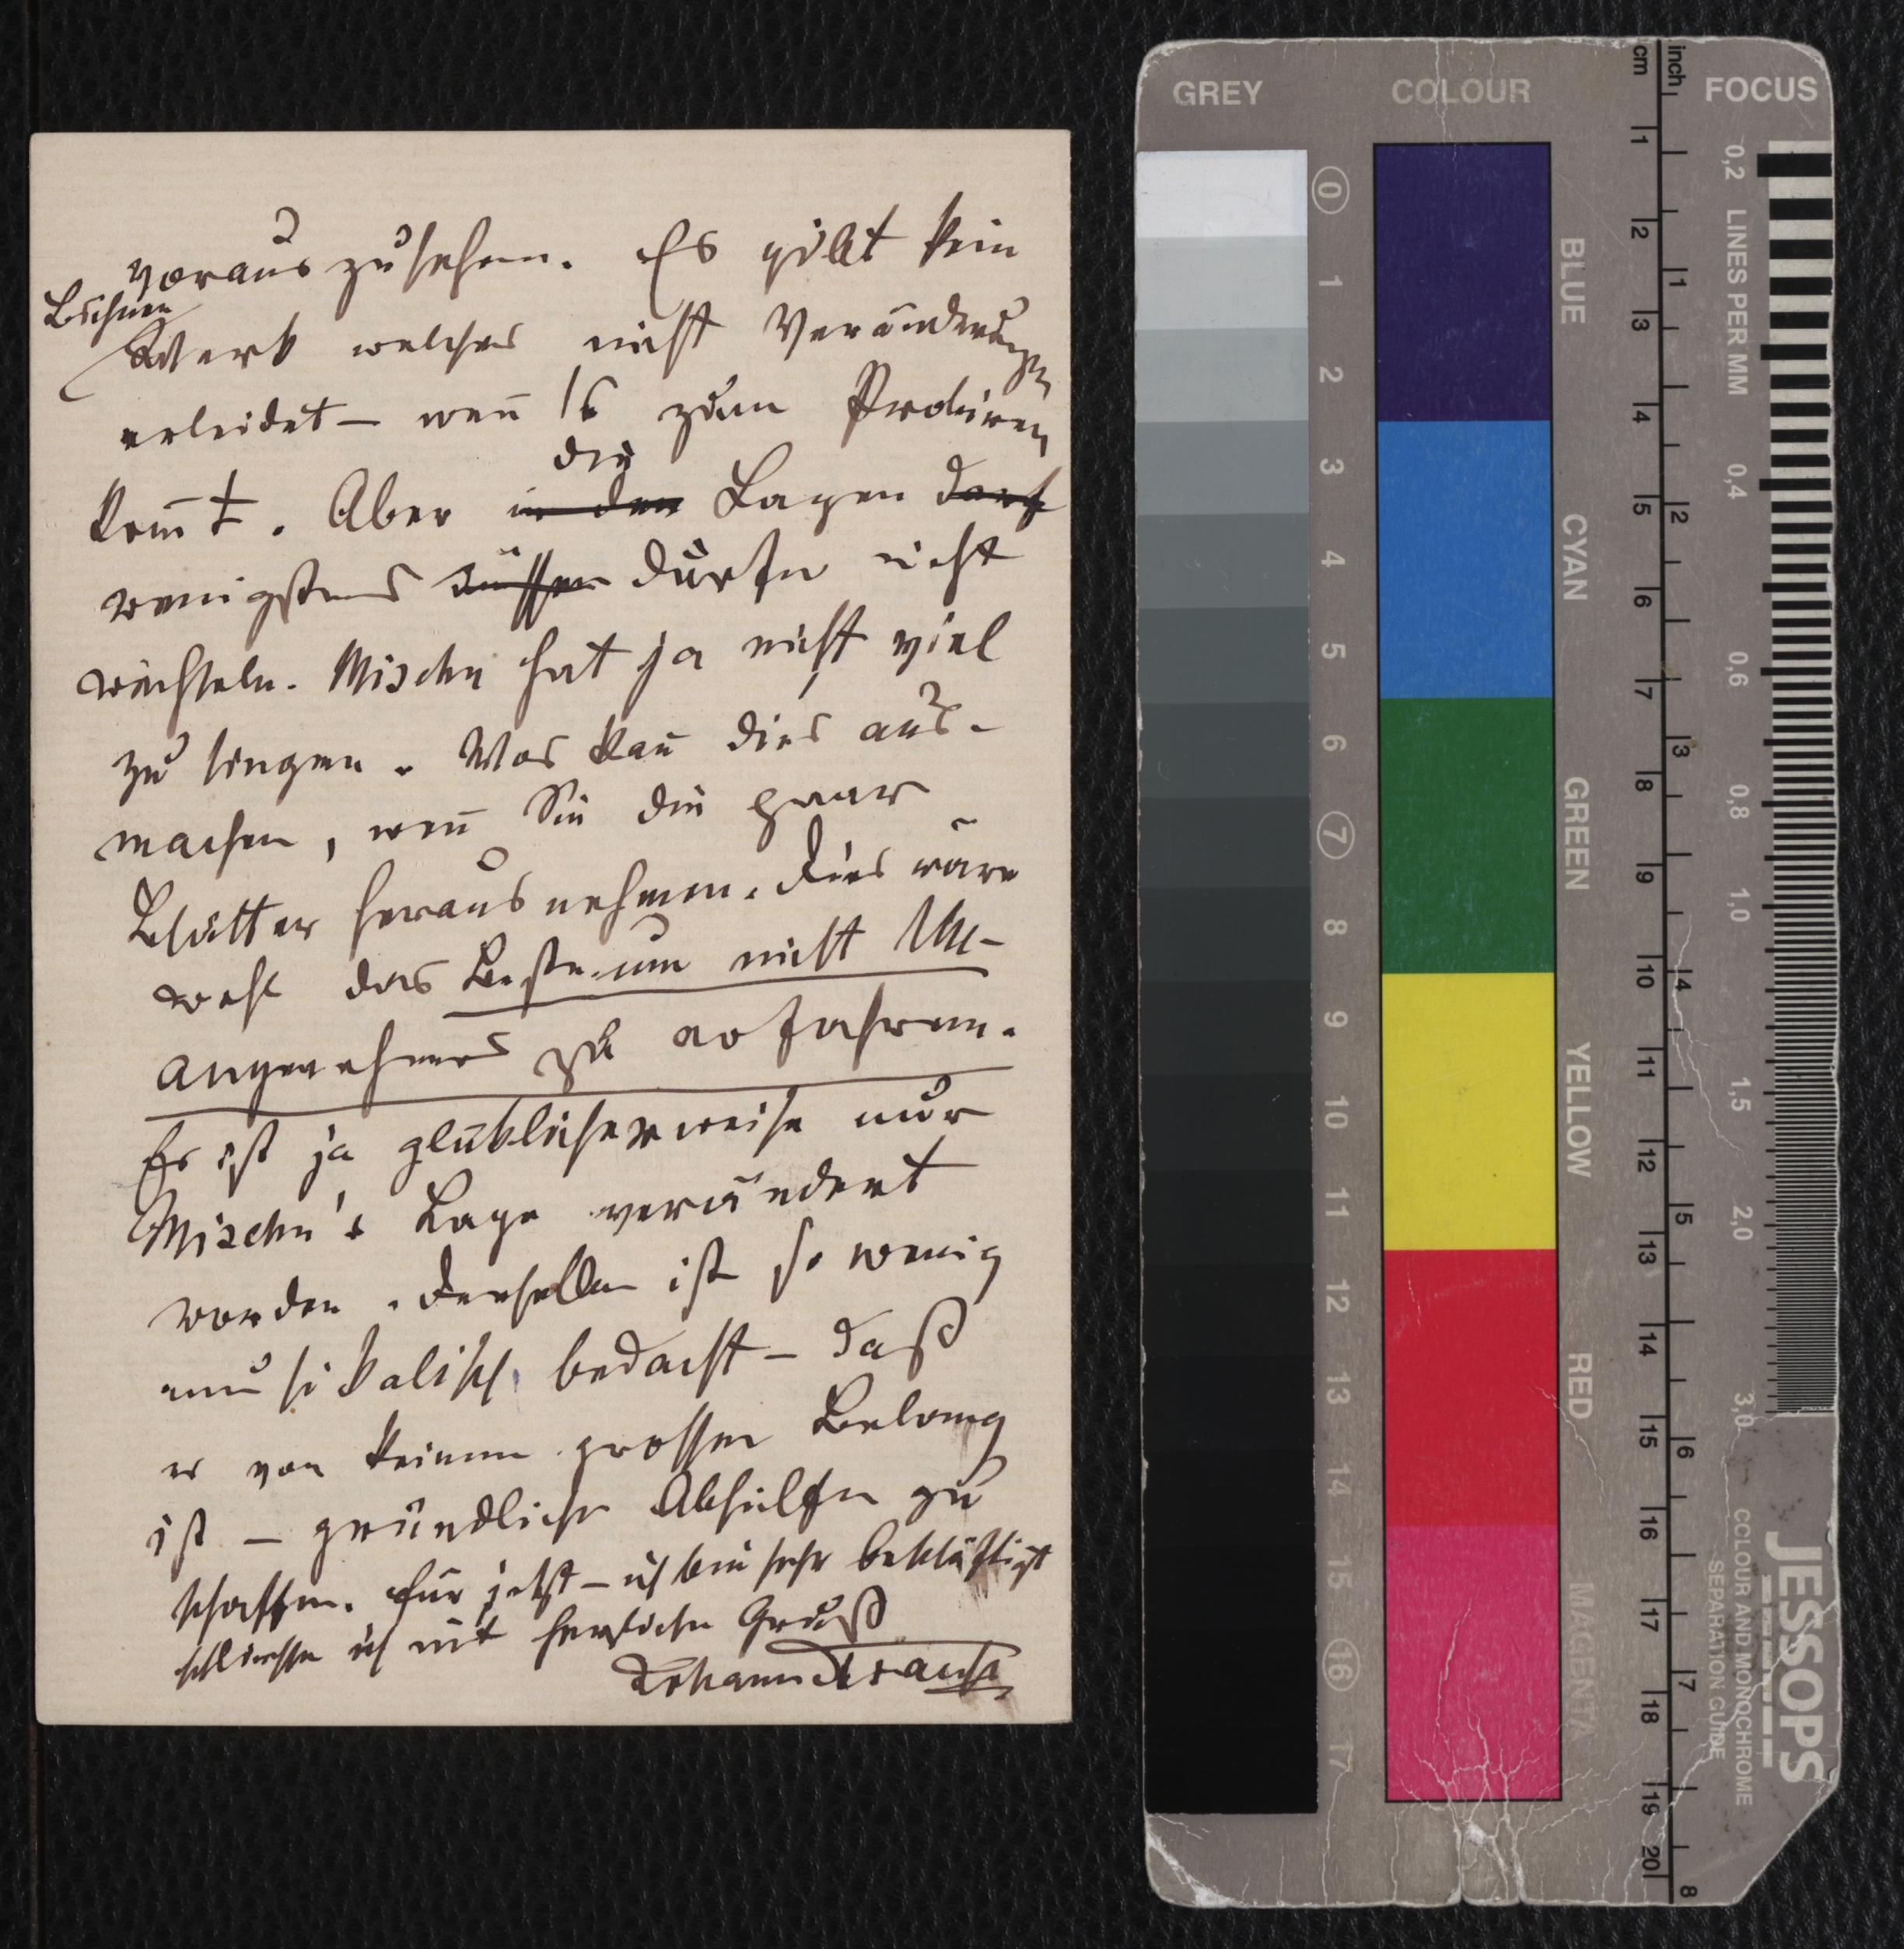 vorauszusehen. Es gibt kein
Bühnen
Werk welches nicht Veränderungen
erleidet – weñ es zum Probiren
kom̄t. Aber in den die Lagen darf
wenigstens müssen dürfen nicht
wechseln. Mischu hat ja nicht viel
zu singen. Was kañ dies aus-
machen, weñ Sie die paar
Blätter herausnehmen. Dies wäre
wohl das Beste um nicht Un-
angenehmes zu erfahren.
Es ist ja glücklicherweise nur
Mischu's Lage verändert
worden. Derselbe ist so wenig
musikalisch bedacht – daß
es von keinem grossen Belang
ist – gründliche Abhilfe zu
schaffen. Für jetzt – ich bin sehr beschäftigt
schliesse ich mit herzlichen Gruß
Johann Strauss
GREY
COLOUR
FOCUS
cm
inch
0 1 2 3 4 5 6 7 8 9 10 11 12 13 14 15 16 17
BLUE
CYAN
GREEN
YELLOW
RED
MAGENTA
1 2 3 4 5 6 7 8 9 10 11 12 13 14 15 16 17 18 19 20
1 2 3 4 5 6 7 8
0,2 LINES PER MM 0,4 0,6 0,8 1,0 1,5 2,0 3,0
JESSOPS
COLOUR AND MONOCHROME
SEPARATION GUIDE